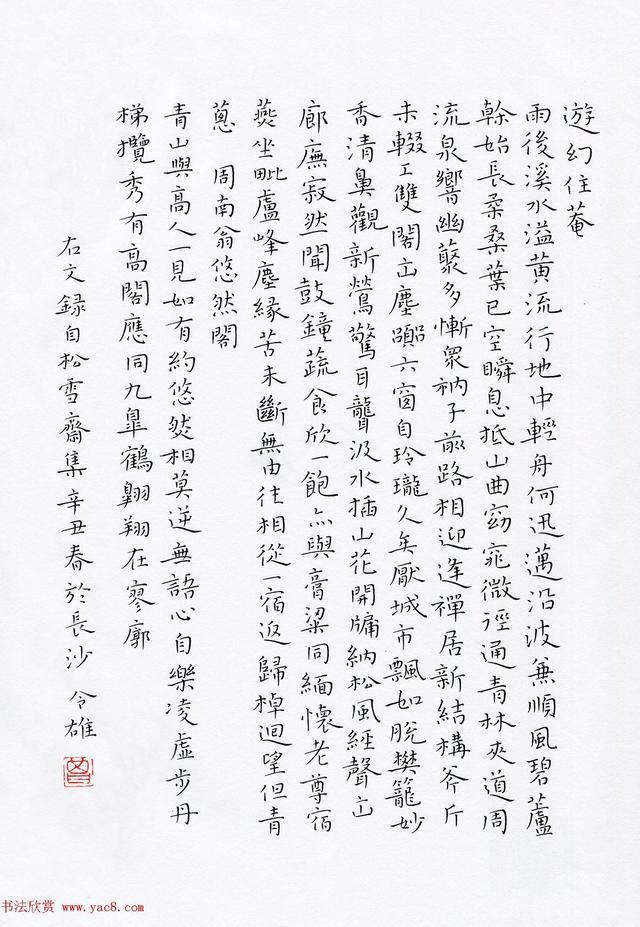 遊幻住菴
雨後溪水溢黄流行地中輕舟何迅邁沿波兼順風碧蘆
幹始長柔桑葉已空瞬息抵山曲窈窕微徑通青林夾道周
流泉響幽藂多慚衆衲子前路相迎逢禪居新結構斧斤
未輟工雙閣出塵躅六窗自玲瓏久矣厭城市飄如脫樊籠妙
香清鼻觀新鶯驚耳聾汲水插山花開牖納松風經聲出
廊廡寂然聞鼓鐘蔬食欣一飽亦與膏粱同緬懷老尊宿
燕坐毗盧峰塵緣苦未斷無由往相從一宿返歸棹迴望但青
蔥 周南翁悠然閣
青山與高人一見如有約悠然相莫逆無語心自樂凌虛步丹
梯攬秀有高閣應同九皐鶴翺翔在寥廓
右文録自松雪齋集辛丑春於長沙 令雄
书法欣赏 www.yac8.com